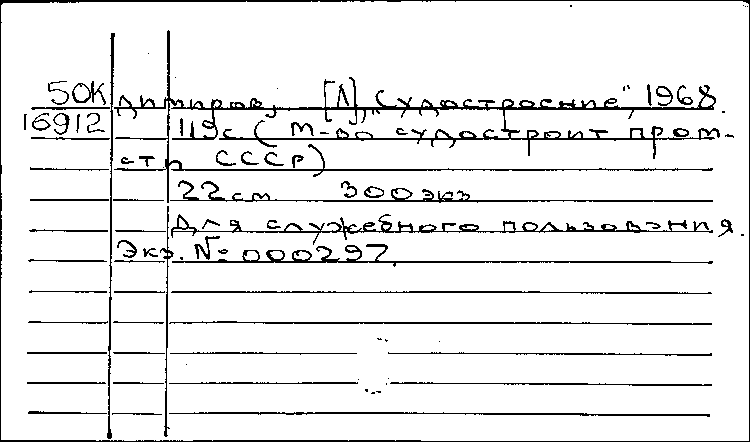 50К димиров, [Л], "Судостроение", 1968.
16912 119с. (М-во судостроит пром-
сти СССР)
22см 300экз
Для служебного пользования.
Экз. № 000297.